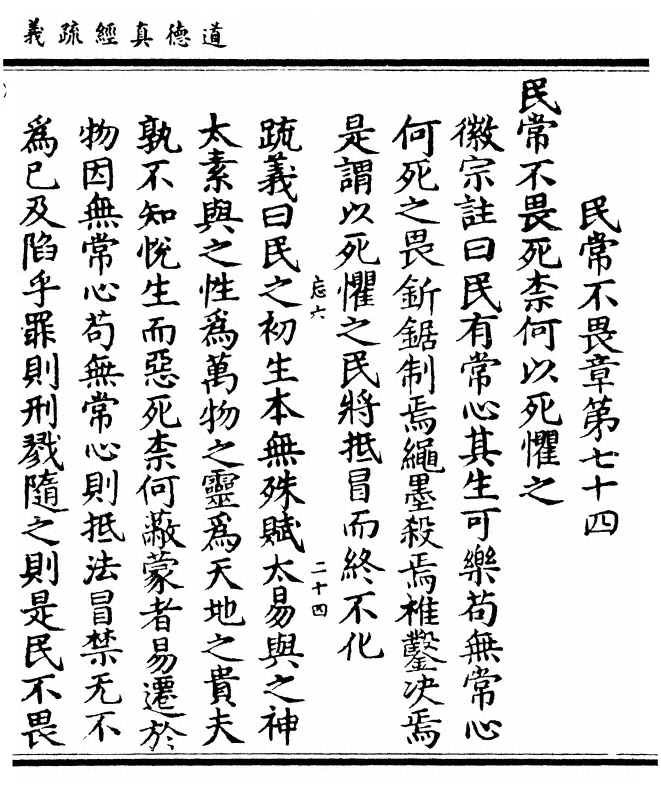 道德真經疏義
民常不畏章第七十四
民常不畏死柰何以死懼之
徽宗註曰民有常心其生可樂苟無常心
何死之畏釿鋸制焉繩墨殺焉椎鑿决焉
是謂以死懼之民將抵冒而終不化
忘六
二十四
疏義曰民之初生本無殊賦太易與之神
太素與之性爲萬物之靈爲天地之貴夫
孰不知悅生而惡死柰何蔽蒙者易遷於
物因無常心苟無常心則抵法冒禁无不
爲已及陷乎罪則刑戮隨之則是民不畏